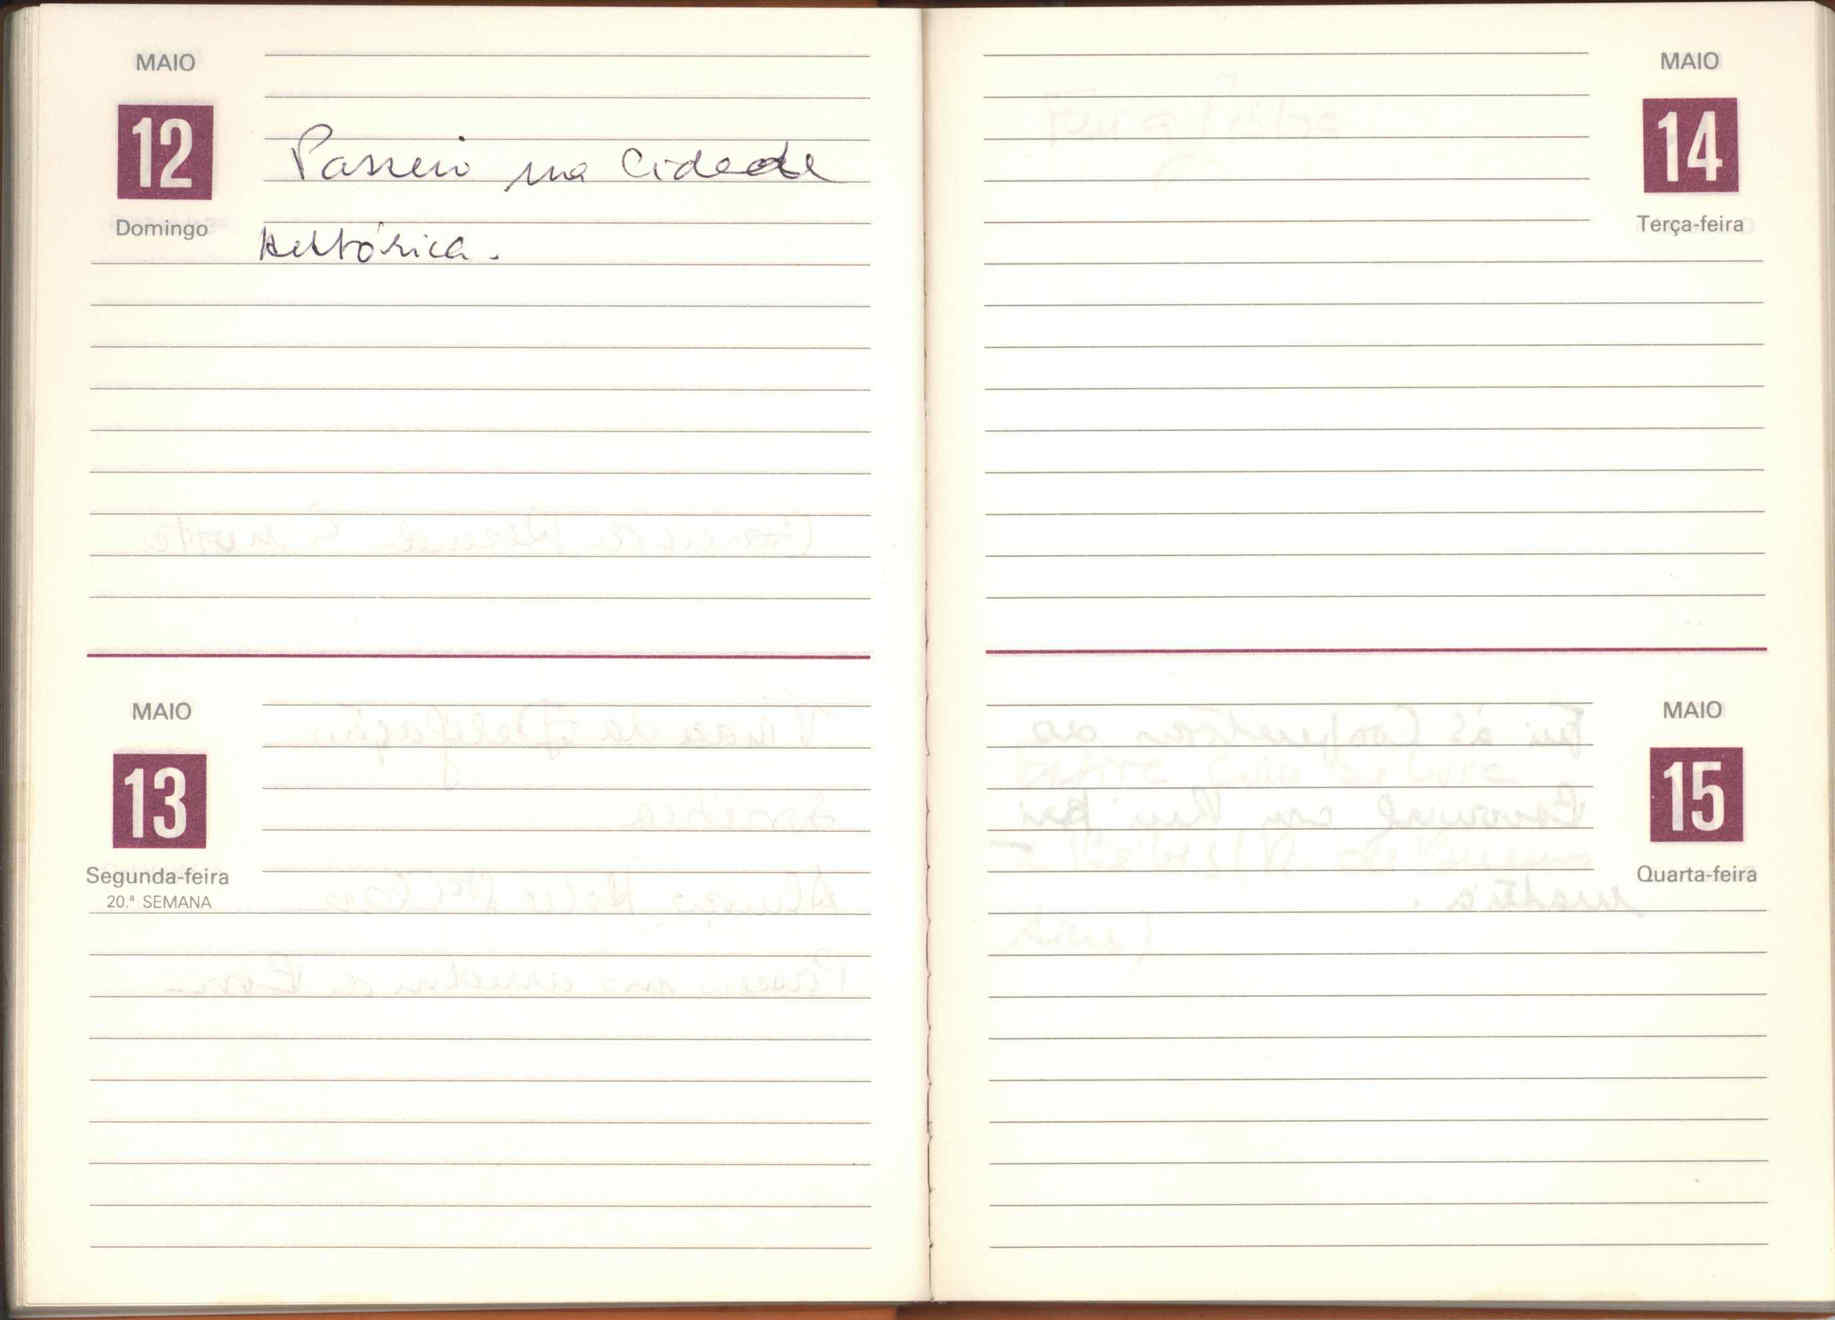 MAIO
12
Domingo
Passeio na Cidade
Histórica.
MAIO
13
Segunda-feira
20.ª SEMANA
MAIO
14
Terça-feira
MAIO
15
Quarta-feira